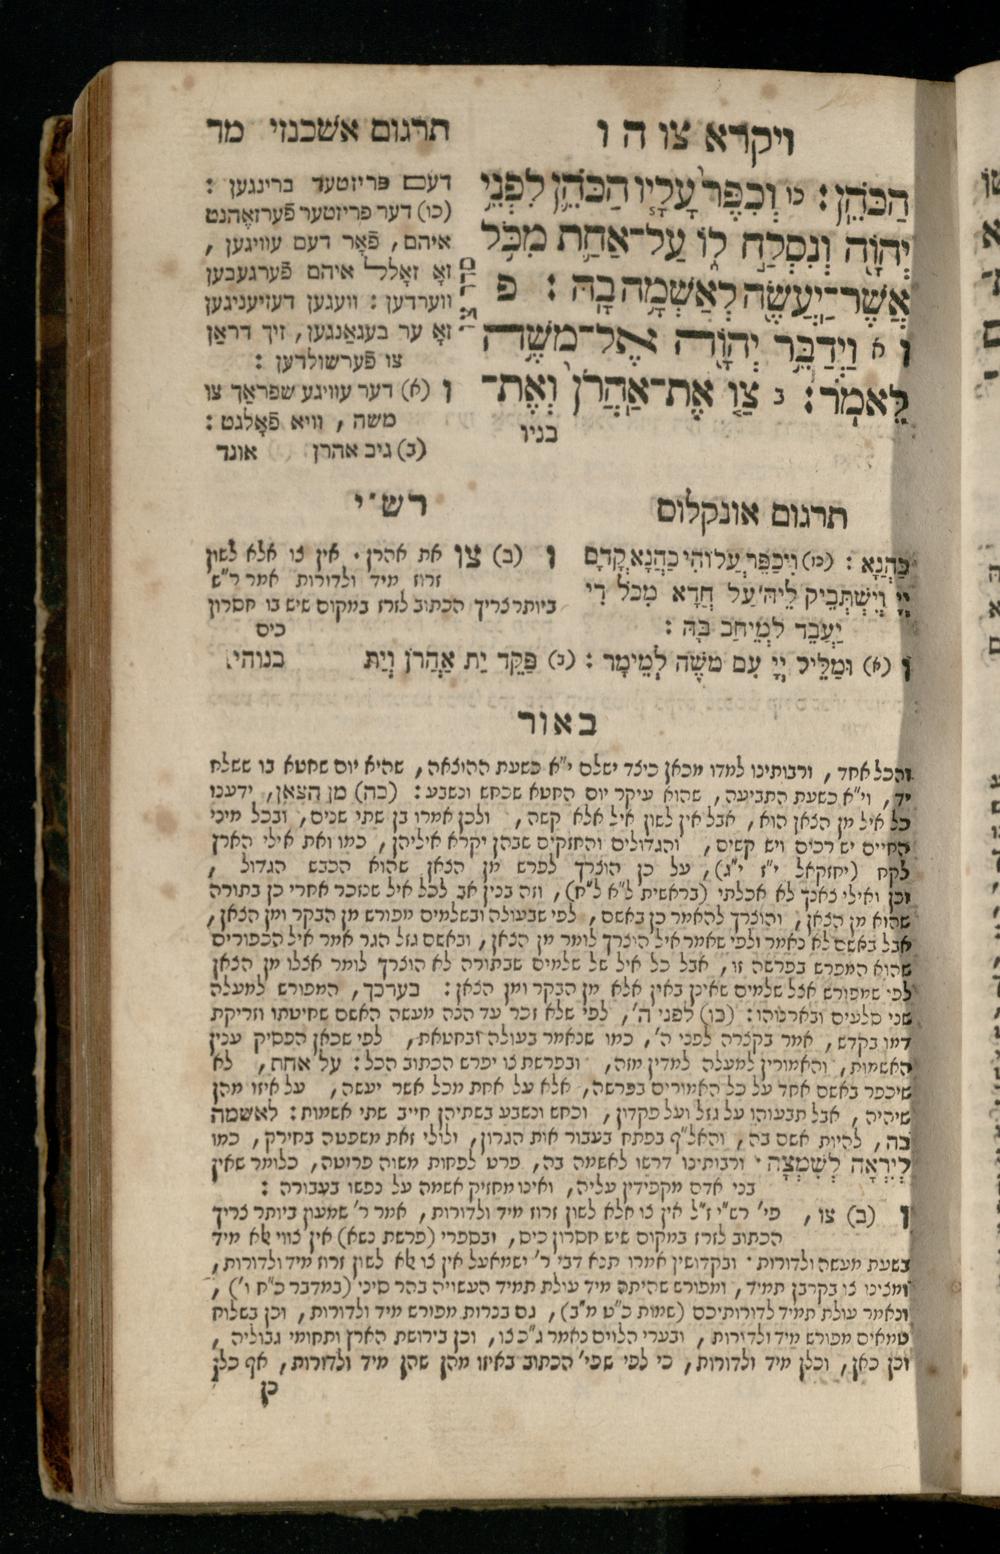 ויקרא צו ה ו
תרגום אשכנזי מד
הַכֹּהֵן׃ כו וְכִפֶּר עָלָיו הַכֹּהֵן לִפְנֵי
יְהוָֹה וְנִסְלַח לוֹ עַל־אַחַת מִכֹּל
אֲשֶׁר־יַעֲשֶׂה לְאַשְׁמָה בָהּ׃ פ
ו א וַיְדַבֵּר יְהוָֹה אֶל־מֹשֶׁה
לֵּאמֹר׃ ב צַו אֶת־אַהֲרֹן וְאֶת־
בניו
דעם פריזטער ברינגען :
(כו) דער פריזטער פֿערזאָהנט
איהם, פֿאָר דעם עוויגען ,
זאָ זאָללל איהם פֿערגעבען
ווערדען : וועגען דעזיעניגען
זאָ ער בעגאַנגען, זיך דראַן
צו פֿערשולדען :
ו (א) דער עוויגע שפראַך צו
משה , וויא פֿאָלגט :
(ב) גיב אהרן אונד
תרגום אונקלוס
כַּהֲנָא : (כו) וִיכַפֵּר עֲלוֹהִי כַּהֲנָא קֳדָם
יְיָ וְיִשְׁתְּבֵיק לֵיהּ עַל חֲדָא מִכֹּל דִי
יַעֲבֵד לְמֵיחַב בָּהּ :
ו (א) וּמַלֵּיל יְיָ עִם מֹשֶׁה לְמֵימָר : (ב) פַּקֵּד יַת אַהֲרֹן וְיַת בנוהי
רש״י
ו (ב) צו את אהרן . אין צו אלא לשון
זרוז מיד ולדורות אמר ר״ש
ביותר צריך הכתוב לזרז במקום שיש בו חסרון
כיס
באור
והכל אחד , ורבותינו למדו מכאן כיצד ישלם י״א כשעת ההוצאה, שהיא יום שחטא בו ששלח
יד, וי״א כשעת התביעה, שהוא עיקר יום החטא שכחש ונשבע : (כה) מן הצאן, ידענו
כל איל מן הצאן הוא, אבל אין לשון איל אלא קשה, ולכן אמרו בן שתי שנים, ובכל מיני
החיים יש רכים ויש קשים, והגדולים והחזקים שבהן יקרא איליהן, כמו ואת אילי הארץ
לקח (יחזקאל י״ז י״ג), על כן הוצרך לפרש מן הצאן שהוא הכבש הגדול ,
וכן ואילי צאנך לא אכלתי (בראשית ל״א ל״ח), וזה בנין אב לכל איל שנזכר אחרי כן בתורה
שהוא מן הצאן, והוצרך להאמר כן באשם, לפי שבעולה ובשלמים מפורש מן הבקר ומן הצאן,
אבל באשם לא נאמר ולפי שאמר איל הוצרך לומר מן הצאן, ובאשם גזל הגר אמר איל הכפורים
שהוא המפרש בפרשה זו, אבל כל איל של שלמים שבתורה לא הוצרך לומר אצלו מן הצאן
לפי שמפורש אצל שלמים שאינן באין אלא מן הבקר ומן הצאן : בערכך, המפורש למעלה
שני סלעים ובארנוהו : (כו) לפני ה׳, לפי שלא זכר עד הנה מעשה האשם שחיטתו וזריקת
דמו בקדש, אמר בקצרה לפני ה׳, כמו שנאמר בעולה ובחטאת, לפי שכאן הפסיק ענין
האשמות, והאמורין למעלה למדין מזה, ובפרשת צו יפרש הכתוב הכל : על אחת, לא
שיכפר באשם אחד על כל האמורים בפרשה, אלא על אחת מכל אשר יעשה, על איזו מהן
שיהיה, אבל תבעוהו על גזל ועל פקדון, וכחש ונשבע בשתיהן חייב שתי אשמות : לאשמה
בה, להיות אשם בה, והאל״ף בפתח בעבור אות הגרון, ולולי זאת משפטה בחירק, כמו
לְיִרְאָה לְשִׁמְצָה . ורבותינו דרשו לאשמה בה, פרט לפחות משוה פרוטה, כלומר שאין
בני אדם מקפידין עליה, ואינו מחזיק אשמה על נפשו בעבורה :
ו (ב) צו, פי׳ רש״י ז״ל אין צו אלא לשון זרוז מיד ולדורות, אמר ר׳ שמעון ביותר צריך
הכתוב לזרז במקום שיש חסרון כיס, ובספרי (פרשת נשא) אין צווי אלא מיד
בשעת מעשה ולדורות . ובקדושין אמרו תנא דבי ר׳ ישמאעל אין צו אלא לשון זרוז מיד ולדורות,
ומצינו צו בקרבן תמיד, ומפורש שהיתה מיד עולת תמיד העשויה בהר סיני (במדבר כ״ח ו׳) ,
ונאמר עולת תמיד לדורותיכם (שמות כ״ט מ״ב), גם בנרות מפורש מיד ולדורות, וכן בשלוח
טמאים מפורש מיד ולדורות, ובערי הלוים נאמר ג״כ צו, וכן בירושת הארץ ותחומי גבוליה,
וכן כאן, וכלן מיד ולדורות, כי לפי שפי׳ הכתוב באיזו מהן שהן מיד ולדורות, אף כלן
כן